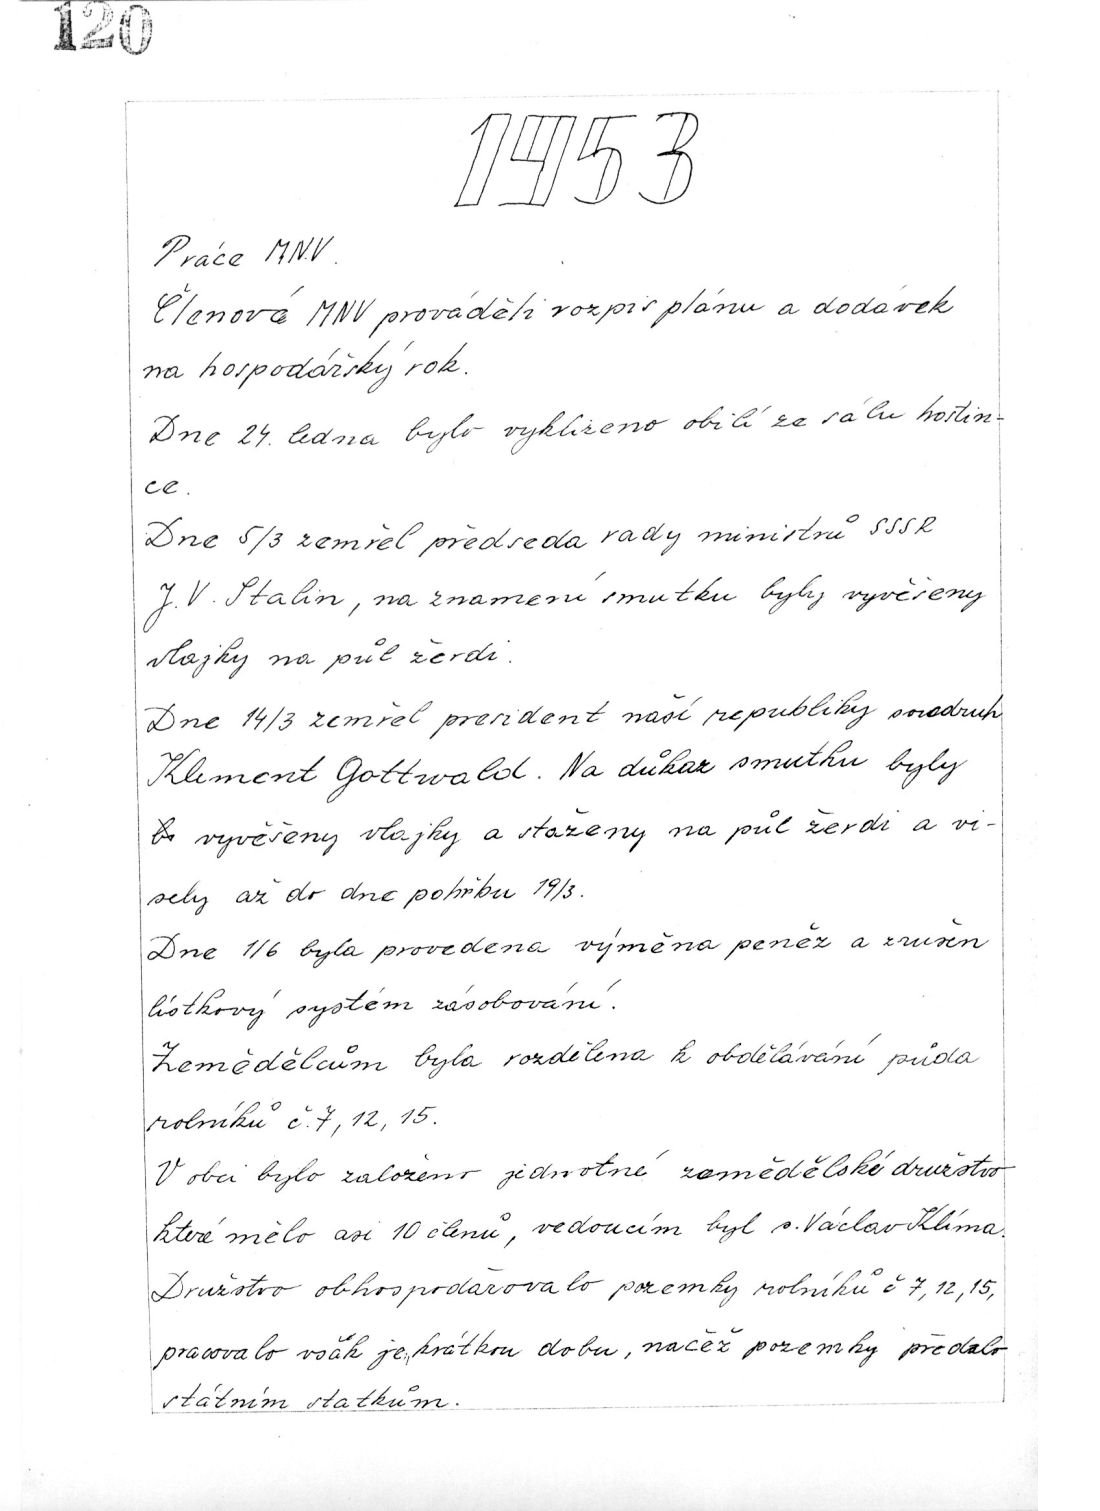 120
1953
Práce MNV.
Členové MNV prováděli rozpis plánu a dodávek
na hospodářský rok.
Dne 24. ledna bylo vyklizeno obilí ze sálu hostin-
ce.
Dne 5/3 zemřel předseda rady ministrů SSSR
J. V. Stalin, na znamení smutku byly vyvěšeny
vlajky na půl žerdi.
Dne 14/3 zemřel president naší republiky soudruh
Klement Gottwald. Na důkaz smutku byly
vyvěšeny vlajky a staženy na půl žerdi a vi-
sely až do dne pohřbu 19/3.
Dne 1/6 byla provedena výměna peněz a zrušen
lístkový systém zásobování.
Zemědělcům byla rozdělena k obdělávání půda
rolníků č. 7, 12, 15.
V obci bylo založeno jednotné zemědělské družstvo
které mělo asi 10 členů, vedoucím byl s. Václav Klíma.
Družstvo obhospodařovalo pozemky rolníků č 7, 12, 15,
pracovalo však jen krátkou dobu, načež pozemky předalo
státním statkům.